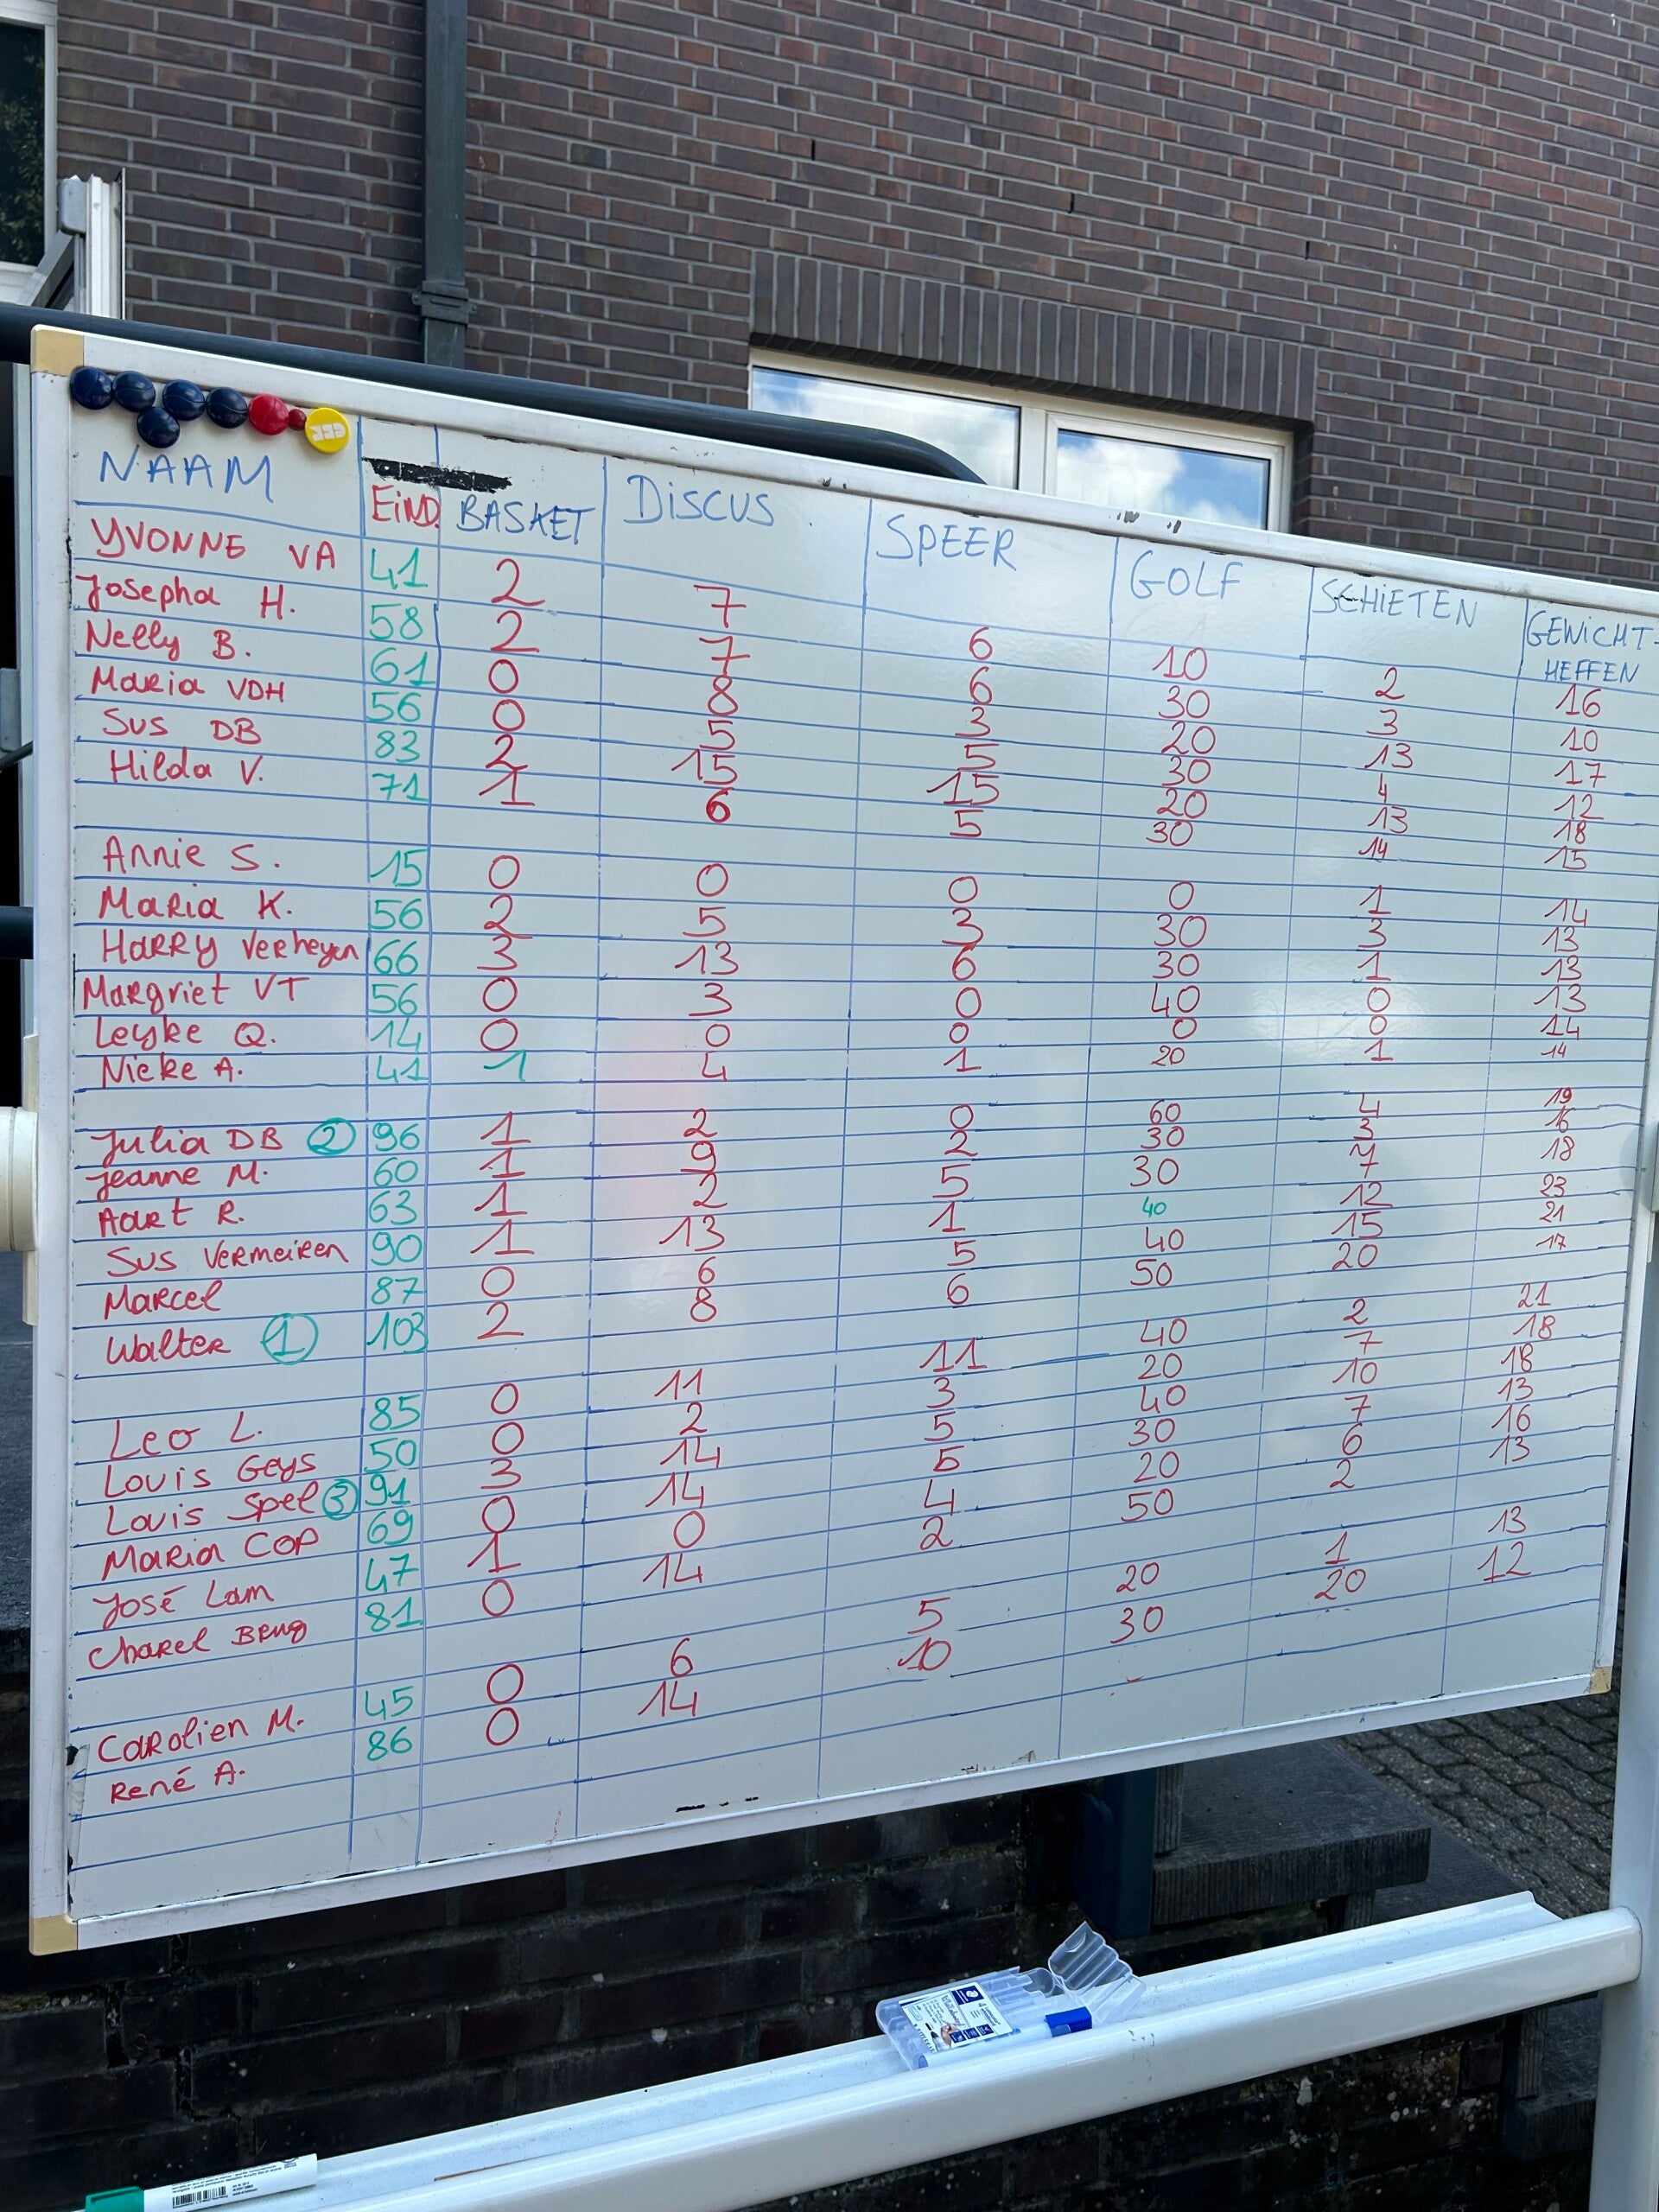 NAAM EIND BASKET DISCUS SPEER GOLF SCHIETEN GEWICHT-HEFFEN
YVONNE VA 41 2 7 6 10 2 16
Josepha H. 58 2 7 6 30 3 10
Nelly B. 61 0 8 3 20 13 17
Maria VDH 56 0 5 5 30 4 12
Sus DB 83 2 15 15 20 13 18
Hilda V. 71 1 6 5 30 14 15
Annie S. 15 0 0 0 0 1 14
Maria K. 56 2 5 3 30 3 13
HARRY Verheyen 66 3 13 6 30 1 13
Margriet VT 56 0 3 0 40 0 13
Leyke Q. 14 0 0 0 0 0 14
Nieke A. 41 1 4 1 20 1 14
Julia DB ② 96 1 2 0 60 4 19
Jeanne M. 60 1 9 2 30 3 16
Aart R. 63 1 2 5 30 7 18
Sus Vermeiren 90 1 13 1 40 12 23
Marcel 87 0 6 5 40 15 21
Walter ① 103 2 8 6 50 20 17
Leo L. 85 0 11 11 40 2 21
Louis Geys 50 0 2 3 20 7 18
Louis Spel ③ 91 3 14 5 40 10 18
Maria COP 69 0 14 5 30 7 13
José Lam 47 1 0 4 20 6 16
Charel 81 0 14 2 50 2 13
Carolien M. 45 0 6 5 20 1 13
René A. 86 0 14 10 30 20 12